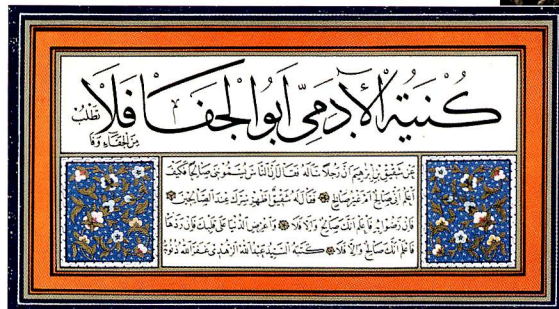 كُنْيَةُ الْآدَمِيِّ أَبُو الْجَفَا فَلَا
تَطْلُبْ
مِنَ الْجَفَاءِ وَفَا
عَنْ شَقِيقِ بْنِ إِبْرٰهِيمَ أَنَّ رَجُلًا سَأَلَهُ فَقَالَ إِنَّ النَّاسَ يُسَمُّونِي صَالِحًا فَكَيْفَ
أَعْلَمُ أَنِّي صَالِحٌ أَمْ غَيْرُ صَالِحٍ فَقَالَ لَهُ شَقِيقٌ أَظْهِرْ سِرَّكَ عِنْدَ الصَّالِحِينَ
فَإِنْ رَضُوا بِهِ فَاعْلَمْ أَنَّكَ صَالِحٌ وَإِلَّا فَلَا وَاعْرِضِ الدُّنْيَا عَلَى قَلْبِكَ فَإِنْ رَدَّهَا
فَاعْلَمْ أَنَّكَ صَالِحٌ وَإِلَّا فَلَا كَتَبَهُ السَّيِّدُ عَبْدُ اللّٰهِ الزُّهْدِي غَفَرَ اللّٰهُ ذُنُوبَهُ